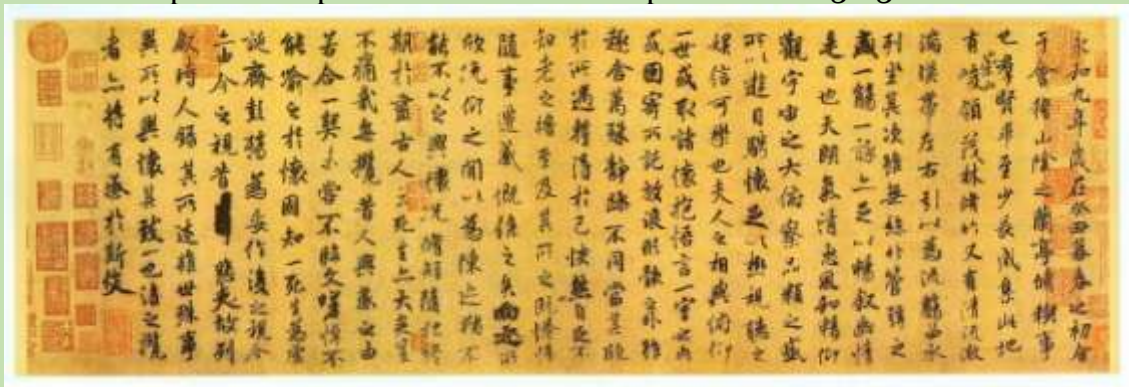 永和九年歲在癸丑暮春之初會
于會稽山陰之蘭亭脩稧事
也群賢畢至少長咸集此地
有崇山峻領茂林脩竹又有清流激
湍暎帶左右引以為流觴曲水
列坐其次雖無絲竹管弦之
盛一觴一詠亦足以暢敘幽情
是日也天朗氣清惠風和暢仰
觀宇宙之大俯察品類之盛
所以遊目騁懷足以極視聽之
娛信可樂也夫人之相與俯仰
一世或取諸懷抱悟言一室之內
或因寄所託放浪形骸之外雖
趣舍萬殊靜躁不同當其欣
於所遇蹔得於己怏然自足不
知老之將至及其所之既惓情
隨事遷感慨係之矣向之所
欣俛仰之閒以為陳跡猶不
能不以之興懷況脩短隨化終
期於盡古人云死生亦大矣豈
不痛哉每攬昔人興感之由
若合一契未嘗不臨文嗟悼不
能喻之於懷固知一死生為虛
誕齊彭殤為妄作後之視今
亦由今之視昔悲夫故列
敘時人錄其所述雖世殊事
異所以興懷其致一也後之攬
者亦將有感於斯文